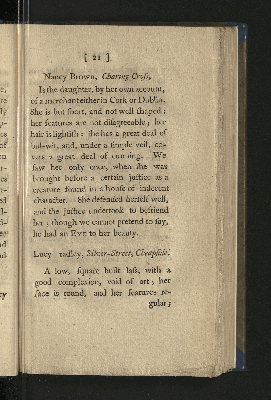 [ 21 ]
Nancy Brown, Charing Cross,
Is the daughter, by her own account,
of a merchant either in Cork or Dublin.
She is but short, and not well shaped;
her features are not disagreeable; her
hair is lightish: she has a great deal of
and, under a simple veil, co-
vers a great deal of cunning. We
saw her only once, when she was
brought before a certain justice as a
creature found in a house of indecent
character. She defended herself well,
and the justice undertook to befriend
her; though we cannot pretend to say,
he had an EYE to her beauty.
Lucy radley, Silver-Street, Cheapside.
A low, square built lass, with a
good complexion, void of art; her
face is round, and her features re-
gular;